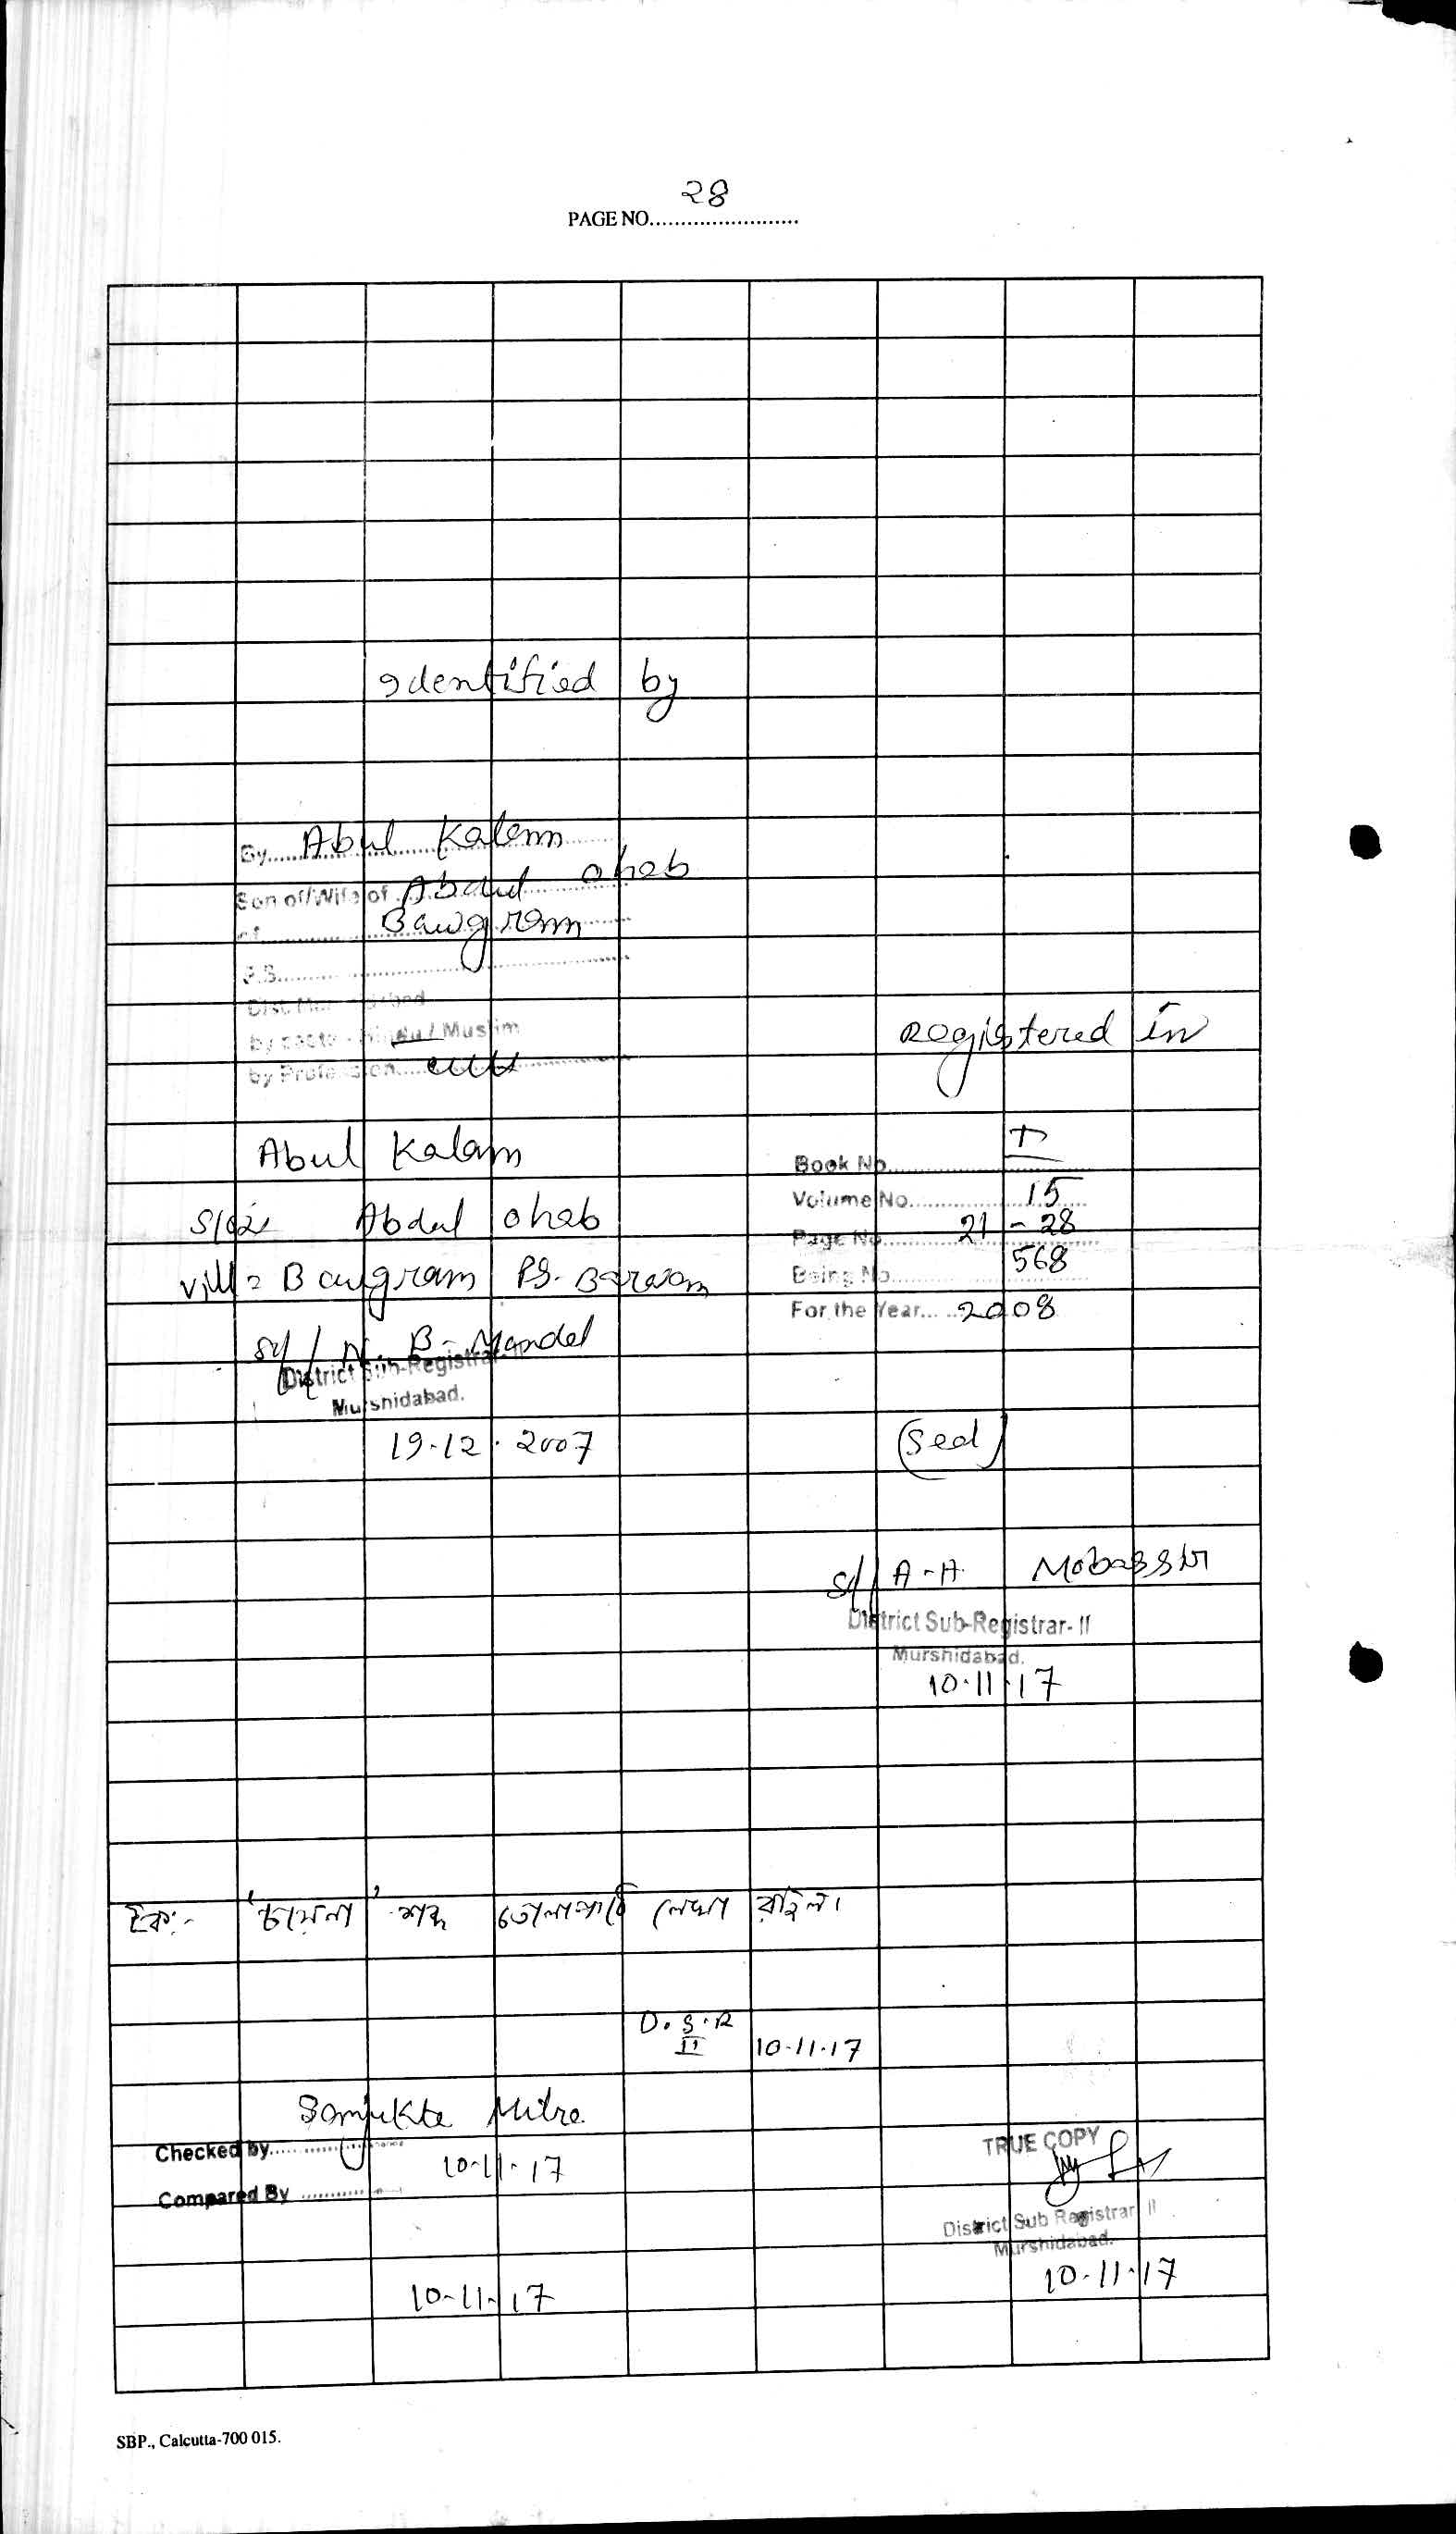 28
PAGE NO........................
Identified by
By...... Abul Kalam
Son of/Wife of Abdul ohab
of........ Bawgram
P.S.........
Dist. Murshidabad
by caste - Hindu / Muslim
by Profession.....
Registered in
Abul Kalam
S/o Abdul ohab
Vill = Bawgram PS. Barwan
Sd/ N. B. Mandal
District Sub-Registrar-II
Murshidabad.
19-12-2007
Book No........ I
Volume No........ 15
Page No........ 21 - 28
Being No........ 568
For the Year...... 2008
(Seal)
Sd/ A-A. Mobassir
District Sub-Registrar-II
Murshidabad.
10.11.17
শব্দ তোলাপাঠে লেখা রহিল।
D.S.R
II 10-11-17
Sanjukta Mitra
Checked by........
10-11-17
Compared By ........
10-11-17
TRUE COPY
District Sub Registrar II
Murshidabad.
10-11-17
SBP., Calcutta-700 015.